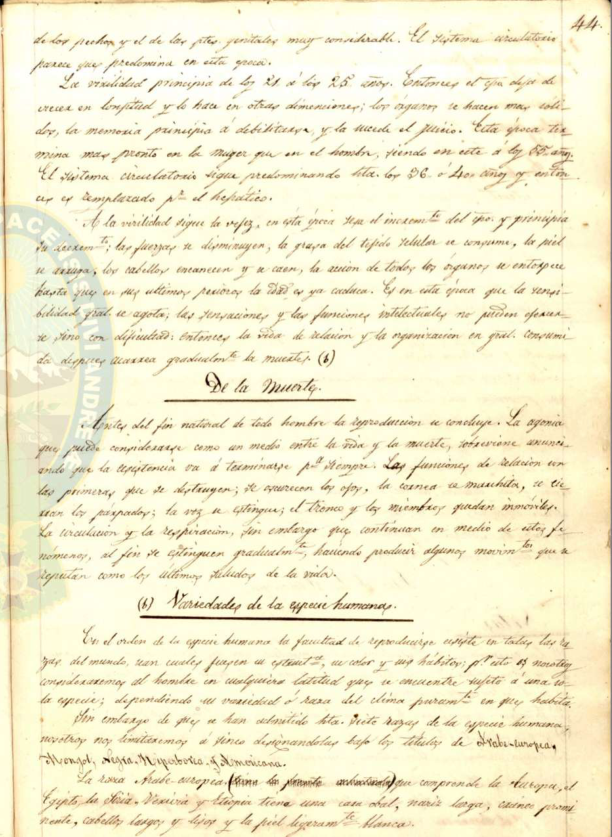 44.
de los pechos y el de las ptes. genitales muy considerable. El sistema circulatorio
parece ques predomina en esta época.
La virilidad principia de los 21 á los 25 años. Entonces el cpo deja de
crecer en lonjitud y lo hace en otras dimensiones; los organos se hacen mas soli-
dos, la memoria principia á debilitarse, y la sucede el juicio. Esta época ter-
mina mas pronto en la muger que en el hombre, siendo en este á los 55 años.
El sistema circulatorio sigue predominando hta. los 36 ó 40 años y enton-
ces es remplazado pr. el hepático.
A la virilidad sigue la vejez, en ésta época sesa el increm.to del cpo. y principia
su decrem.to; las fuerzas se disminuyen, la grasa del tejido selular se consume, la piel
se arruga, los cabellos encanecen y se caen, la accion de todos los órganos se entorpece
hasta que en sus ultimos periodos la edad es ya caduca. Es en esta época que la sensi-
bilidad gral. se agota; las sensaciones y las funciones intelectuales no pueden efectuar-
se sino con dificultad: entonces la vida de relacion y la organizacion en gral. consumi-
da despues acarrea gradualm.te la muerte. (b)
De la Muerte.
Antes del fin natural de todo hombre la reproduccion se concluye. La agonia
que puede considerarse como un medio entre la vida y la muerte, sobreviene anunci-
ando que la ecsistencia va á terminarse p.a siempre. Las funciones de relacion son
las primeras que se destruyen; se oscurecen los ojos, la cornea se marchita, se cie-
rran los párpados; la voz se estingue; el tronco y los miembros quedan inmóviles.
La circulacion y la respiracion, sin embargo que continuan en medio de estos fe-
nomenos, al fin se estinguen gradualm.te, haciendo producir algunos movim.tos que se
reputan como los últimos saludos de la vida.
(b) Variedades de la especie humana.
En el orden de la especie humana la facultad de reproducirse ecsiste en todas las ra-
zas del mundo, sean cuales fuesen su color y sus hábitos; p.r esto nosotros
consideraremos al hombre en cualquiera latitud que se encuentre sujeto á una so-
la especie; dependiendo su variedad ó raza del clima puram.te en que habita.
Sin embargo de ques se han admitido hta. siete razas de la especie humana,
nosotros nos limitaremos á sinco designandolas bajo los titulos de Arabe-europea,
Mongol, Negra, Hiperborea, y Americana.
La raza Arabe-europea que comprende la Europa, el
Egipto, la Siria y Etiopia tiene una cara obal, nariz larga, craneo promi-
nente, cabellos largos y lisos y la piel ligeram.te blanca.